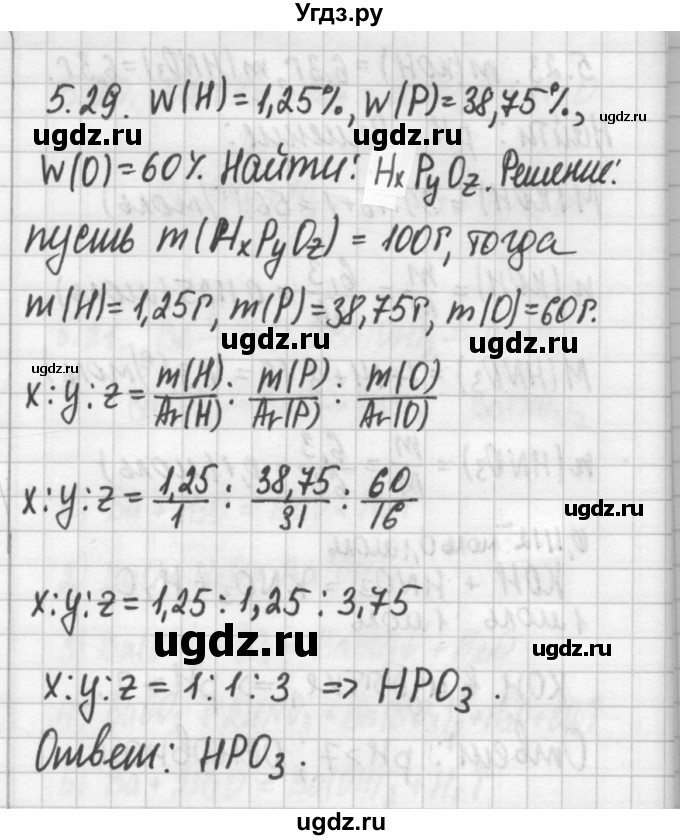 Угдз.ру
5.29. W(H)=1,25%, W(P)=38,75%,
ugdz.ru ugdz.ru
W(O)=60%. Найти: HxPyOz. Решение:
пусть m(HxPyOz) = 100г, тогда
ugdz.ru ugdz.ru
m(H)=1,25г, m(P)=38,75г, m(O)=60г.
ugdz.ru
x:y:z = m(H)/Ar(H) : m(P)/Ar(P) : m(O)/Ar(O)
x:y:z = 1,25/1 : 38,75/31 : 60/16
ugdz.ru
x:y:z = 1,25 : 1,25 : 3,75
ugdz.ru
ugdz.ru
x:y:z = 1:1:3 => HPO3.
Ответ: HPO3.
ugdz.ru ugdz.ru